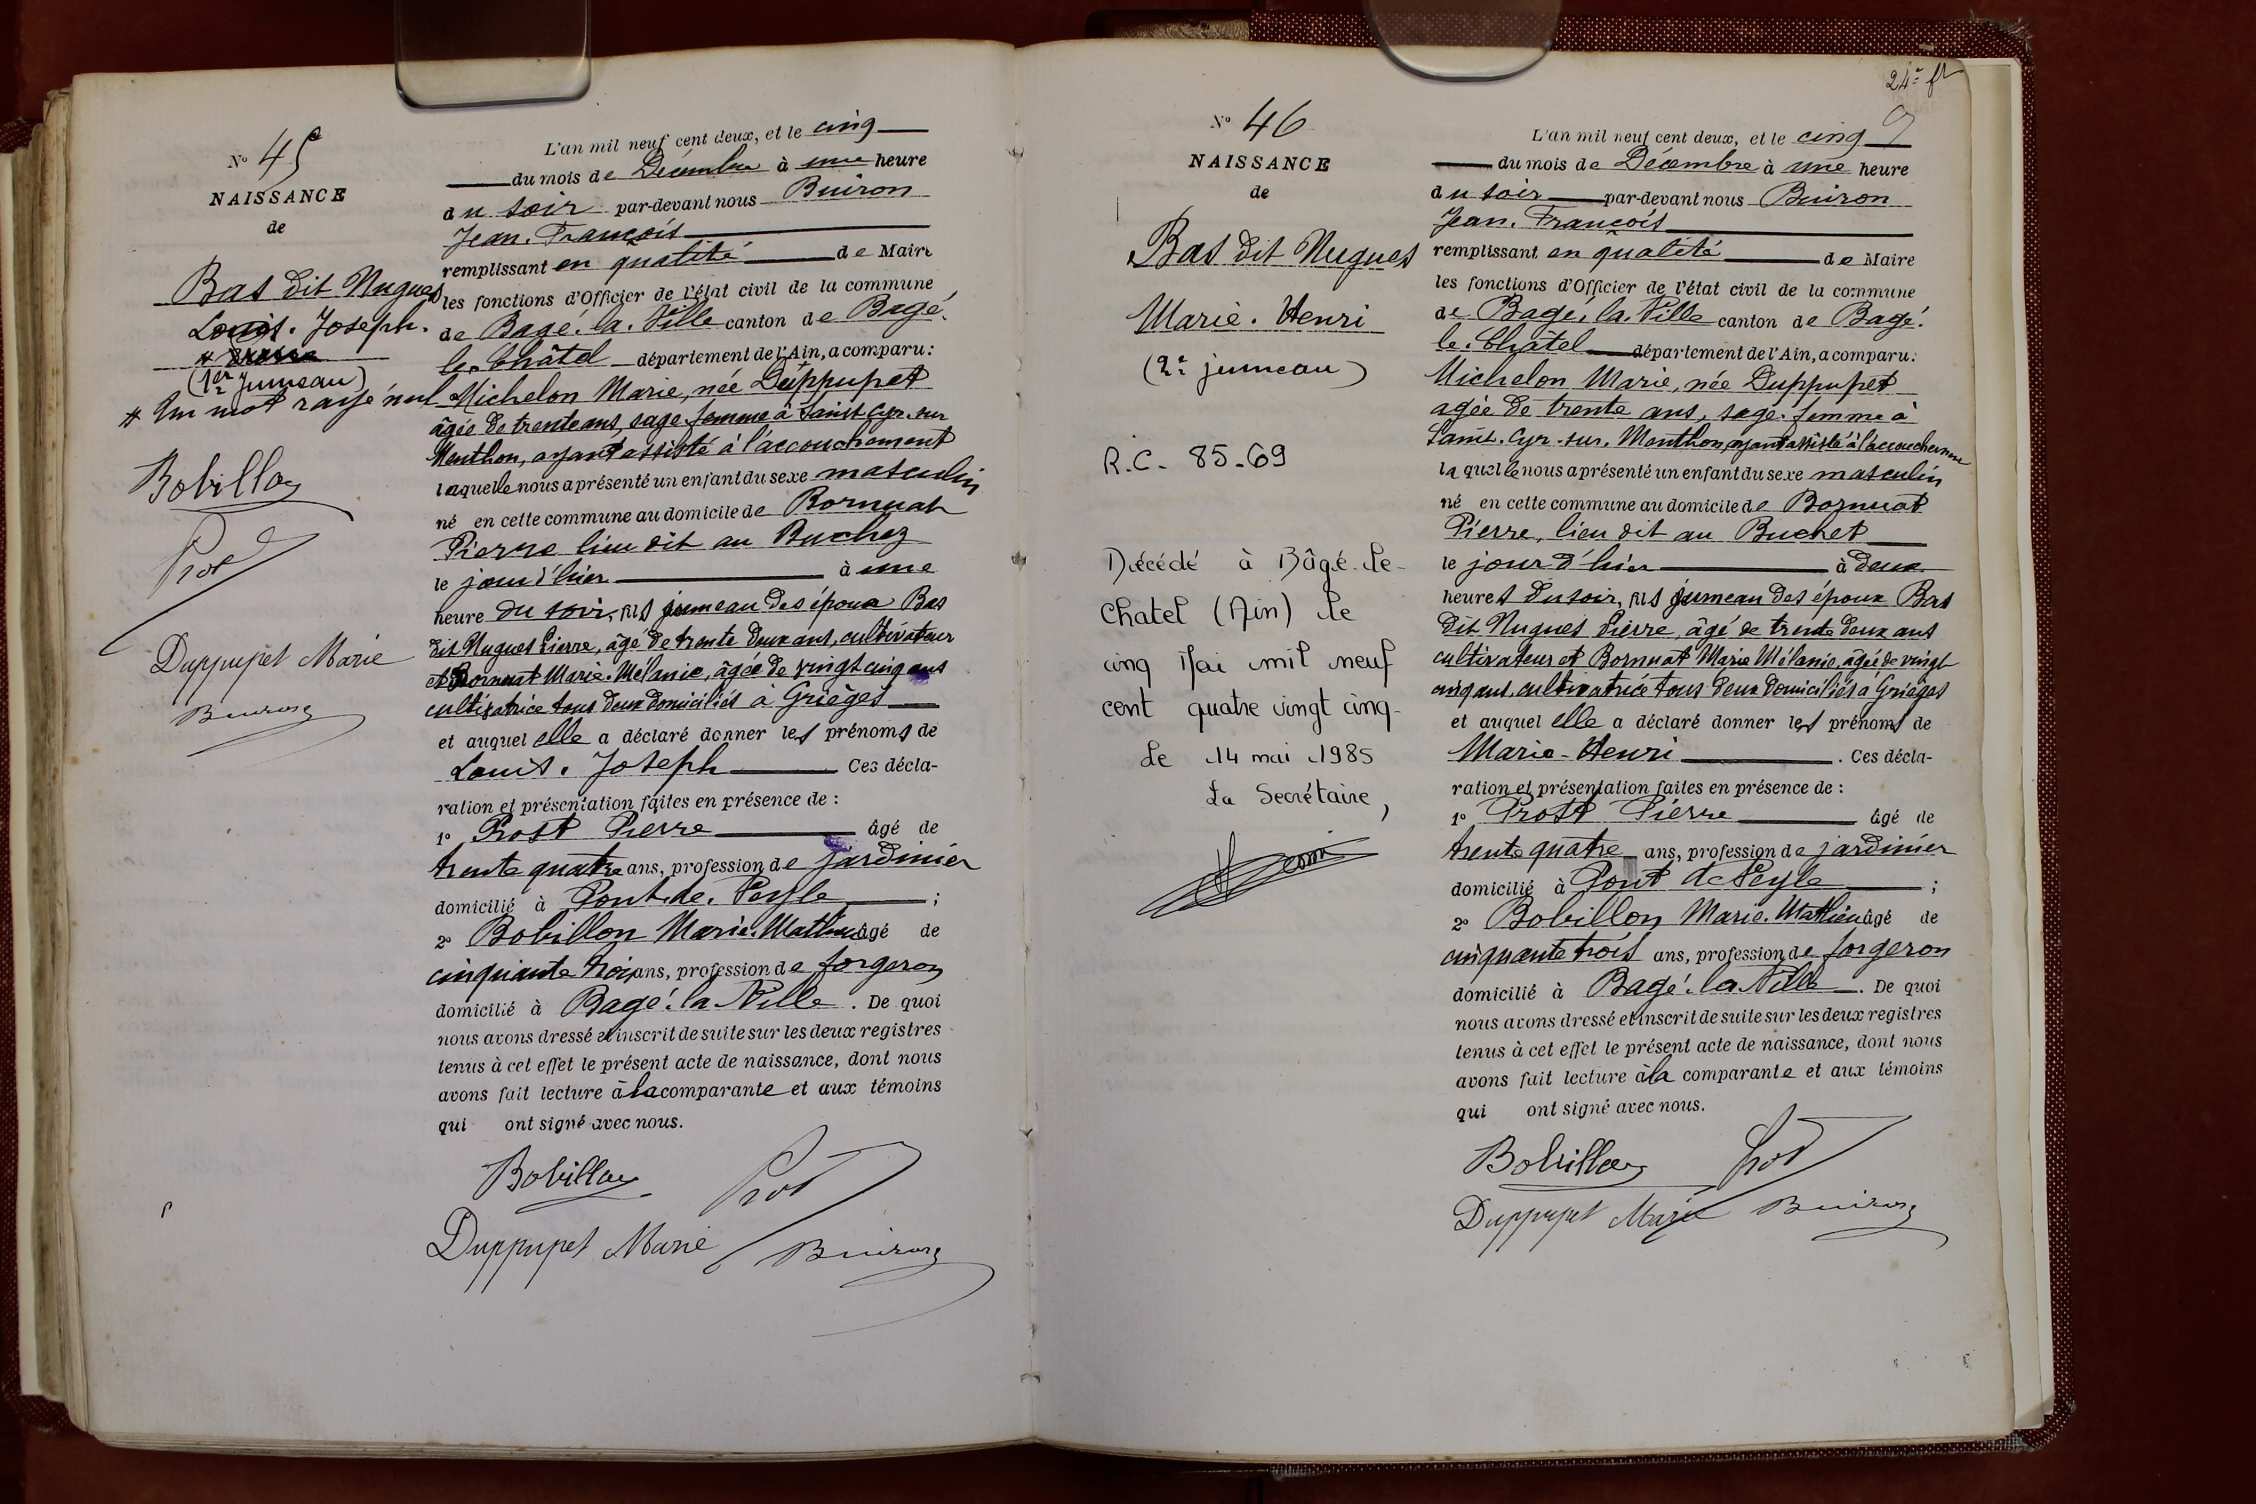 N° 45
NAISSANCE
de
Bas dit Nugues
Louis. Joseph.
(1er Jumeau)
* Un mot rayé nul
Bobillon
Prost
Duppupet Marie
Buiron
L'an mil neuf cent deux, et le cinq
du mois de Décembre à une heure
du soir par-devant nous Buiron
Jean. François
remplissant en qualité de Maire
les fonctions d'Officier de l'état civil de la commune
de Bagé. la. Ville canton de Bagé.
le. Châtel département de l'Ain, a comparu:
Michelon Marie, née Duppupet
âgée de trente ans, sage. femme à Saint Cyr. sur
Menthon, ayant assisté à l'accouchement
laquelle nous a présenté un enfant du sexe masculin
né en cette commune au domicile de Bornuat
Pierre lieu dit au Buchez
le jour d'hier à une
heure du soir, fils jumeau des époux Bas
dit Nugues Pierre, âgé de trente deux ans, cultivateur
et Bornuat Marie. Mélanie, âgée de vingt cinq ans
cultivatrice tous deux domiciliés à Grièges
et auquel elle a déclaré donner les prénoms de
Louis. Joseph Ces décla-
ration et présentation faites en présence de :
1° Prost Pierre âgé de
trente quatre ans, profession de jardinier
domicilié à Pont. de. Veyle ;
2° Bobillon Marie. Mathieu âgé de
cinquante trois ans, profession de forgeron
domicilié à Bagé. la Ville . De quoi
nous avons dressé et inscrit de suite sur les deux registres
tenus à cet effet le présent acte de naissance, dont nous
avons fait lecture à la comparante et aux témoins
qui ont signé avec nous.
Bobillon Prost
Duppupet Marie Buiron
24e ft
N° 46
NAISSANCE
de
Bas dit Nugues
Marie. Henri
(2e jumeau)
R.C. 85-69
Décédé à Bâgé-le-
Chatel (Ain) le
cinq Mai mil neuf
cent quatre vingt cinq-
Le 14 mai 1985
La Secrétaire,
L'an mil neuf cent deux, et le cinq
du mois de Décembre à une heure
du soir par-devant nous Buiron
Jean. François
remplissant en qualité de Maire
les fonctions d'Officier de l'état civil de la commune
de Bagé. la. Ville canton de Bagé.
le. Châtel département de l'Ain, a comparu:
Michelon Marie, née Duppupet
agée de trente ans, sage. femme à
Saint. Cyr. sur. Menthon, ayant assisté à l'accouchement
laquelle nous a présenté un enfant du sexe masculin
né en cette commune au domicile de Bornuat
Pierre, lieu dit au Buchet
le jour d'hier à deux
heures du soir, fils jumeau des époux Bas
dit Nugues Pierre, âgé de trente deux ans
cultivateur et Bornuat Marie Mélanie, âgée de vingt
cinq ans, cultivatrice tous deux domiciliés à Grièges
et auquel elle a déclaré donner les prénoms de
Marie-Henri . Ces décla-
ration et présentation faites en présence de :
1° Prost Pierre âgé de
trente quatre ans, profession de jardinier
domicilié à Pont de Veyle ;
2° Bobillon Marie. Mathieu âgé de
cinquante trois ans, profession de forgeron
domicilié à Bagé. la Ville . De quoi
nous avons dressé et inscrit de suite sur les deux registres
tenus à cet effet le présent acte de naissance, dont nous
avons fait lecture à la comparante et aux témoins
qui ont signé avec nous.
Bobillon Prost
Duppupet Marie Buiron